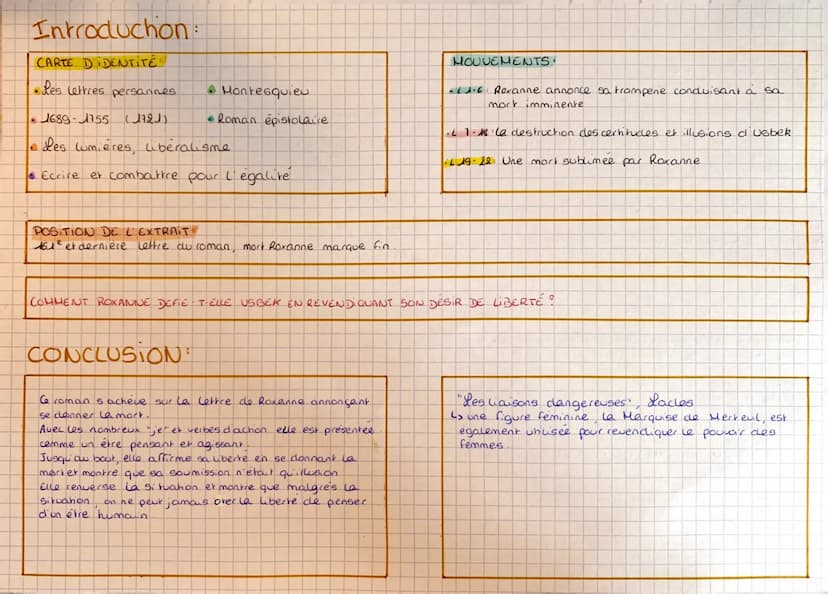 Introduction:
CARTE D'IDENTITÉ
• Les lettres persannes
• Montesquieu
• 1689-1755 (1721)
• Roman épistolaire
• Les lumières, libéralisme
• Ecrire et combattre pour l'égalité
MOUVEMENTS:
• L1-6: Roxanne annonce sa tromperie conduisant à sa
mort imminente
• L 7-18: la destruction des certitudes et illusions d'Usbek
• L19-22: Une mort sublimée par Roxanne
POSITION DE L'EXTRAIT:
161e et dernière lettre du roman, mort Roxanne marque fin
COMMENT ROXANNE DEFIE-T-ELLE USBEK EN REVENDIQUANT SON DÉSIR DE LIBERTÉ?
CONCLUSION:
Ce roman s'achève sur la lettre de Roxanne annonçant
se donner la mort.
Avec les nombreux "je" et verbes d'action elle est présentée
comme un être pensant et agissant.
Jusqu'au bout, elle affirme sa liberté en se donnant la
mort et montre que sa soumission n'était qu'illusion
Elle renverse la situation et montre que malgrés la
situation, on ne peut jamais oter la liberté de penser
d'un être humain
"Les liaisons dangereuses", Laclos
↳ une figure féminine, la Marquise de Merteuil, est
également utilisée pour revendiquer le pouvoir des
femmes.